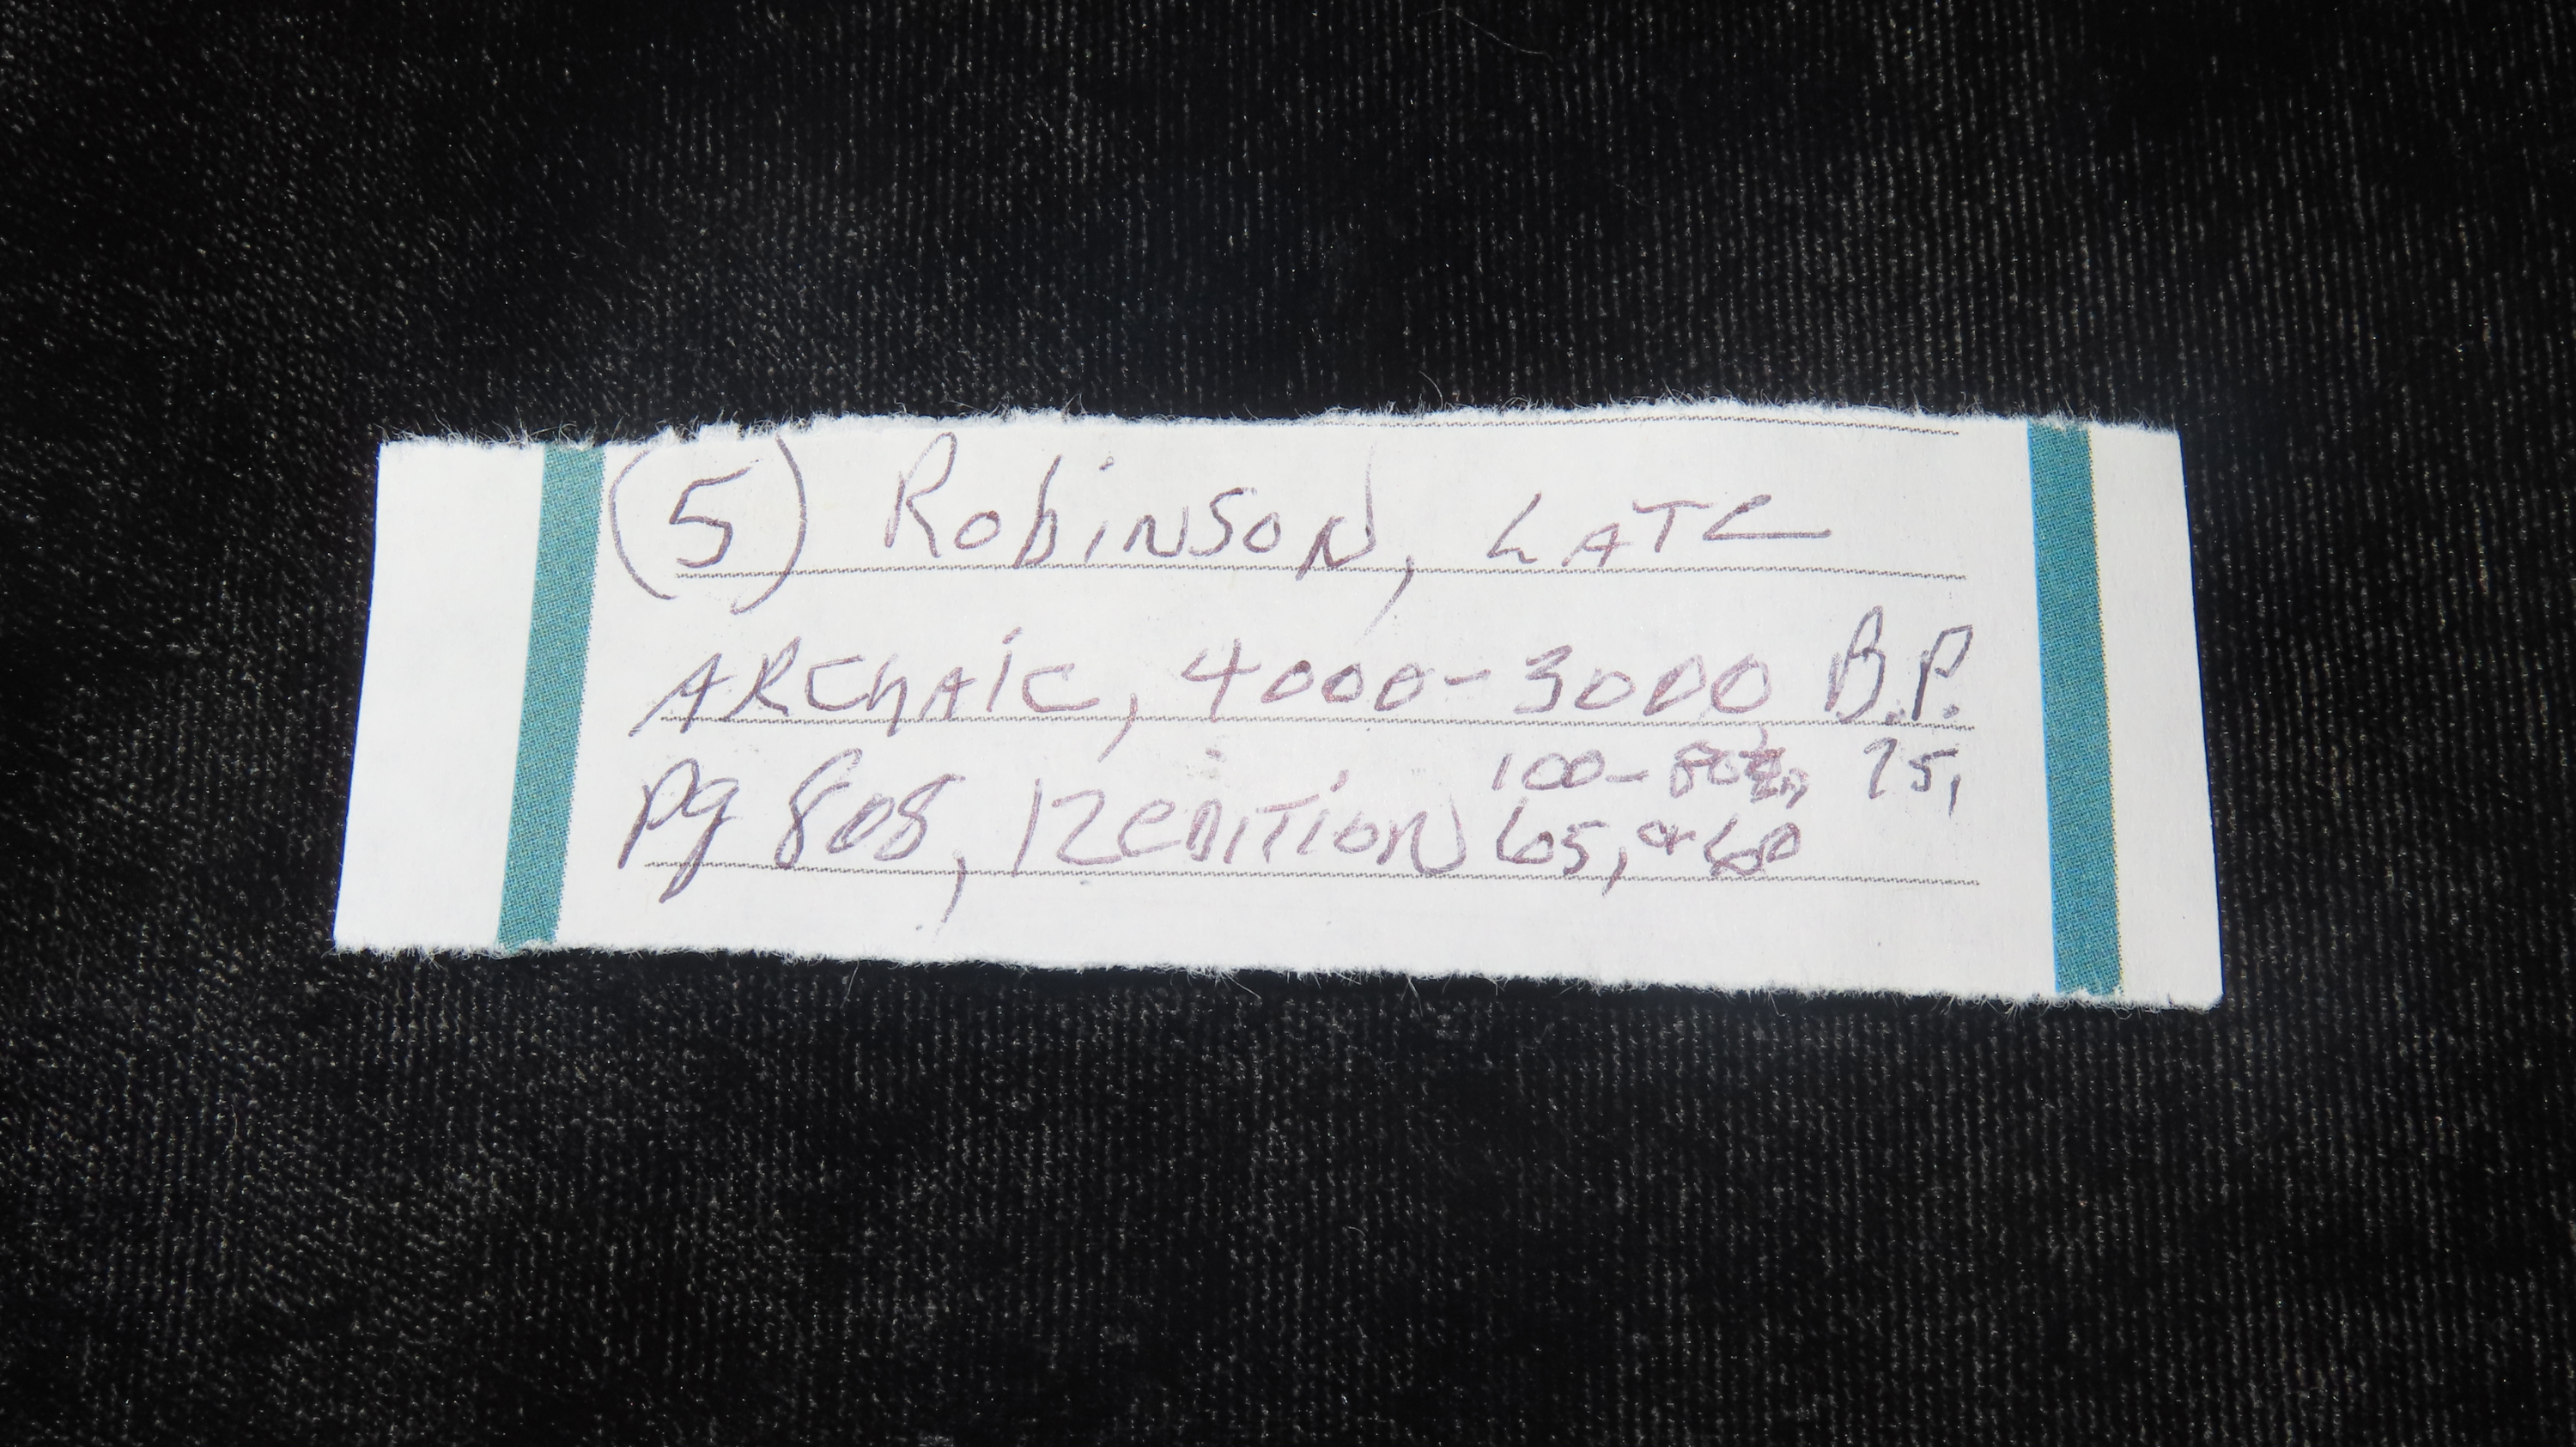 (5) Robinson, LATE
ARChAic, 4000-3000 B.P.
100- 75,
Pg 808, 12 EDITION 65, or 60